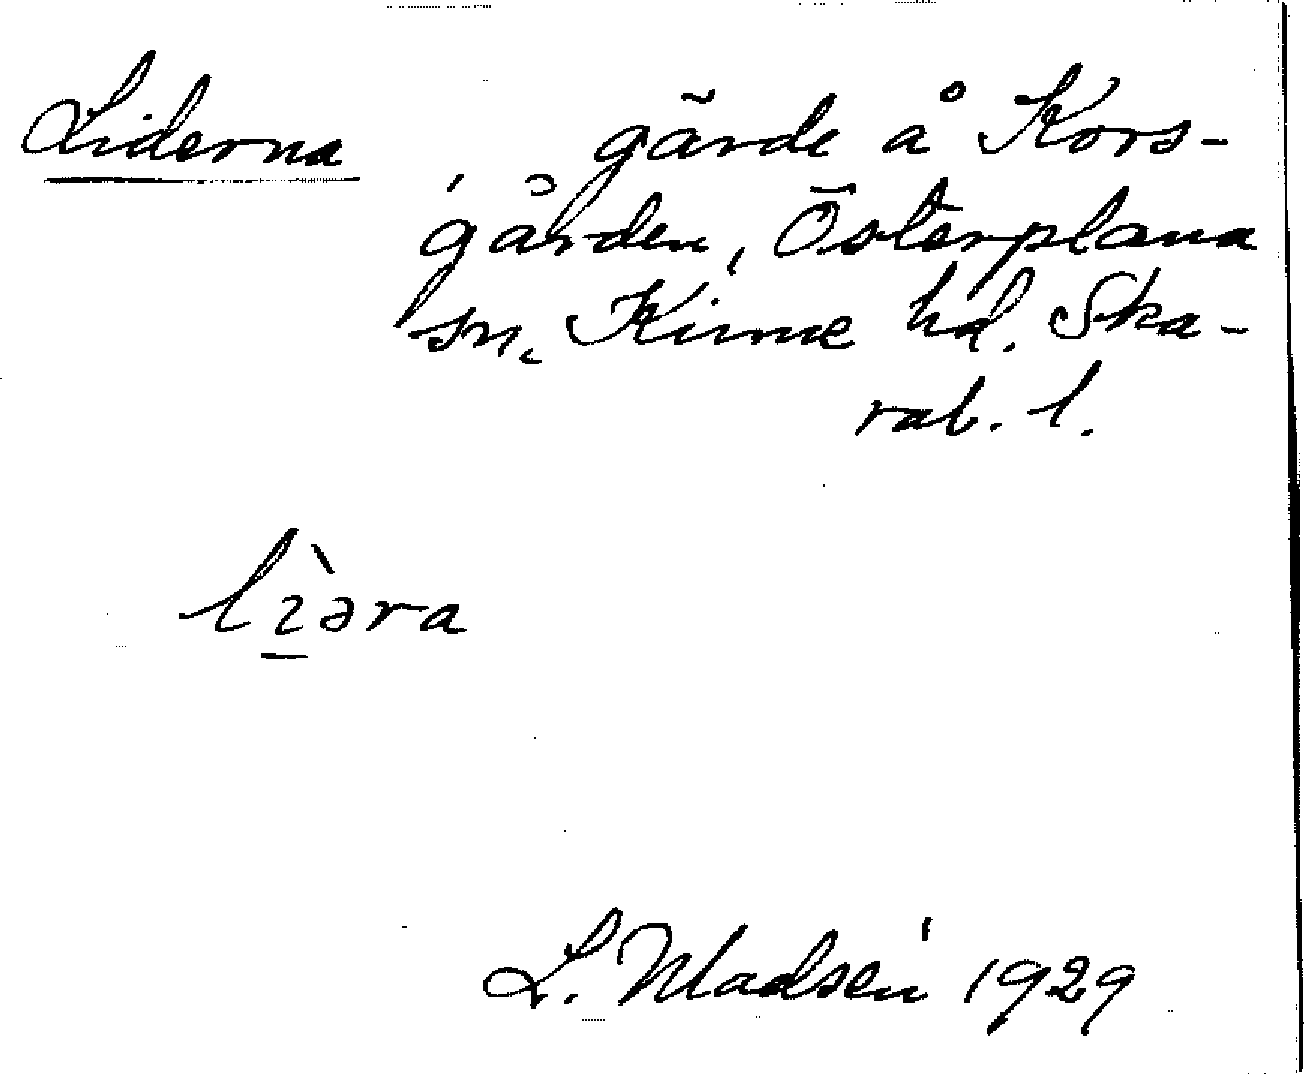 Liderna gärde å Kors-
gården, Österplana
sn, Kinne hd. Ska-
rab. l.
lìəra
L. Madsén 1929